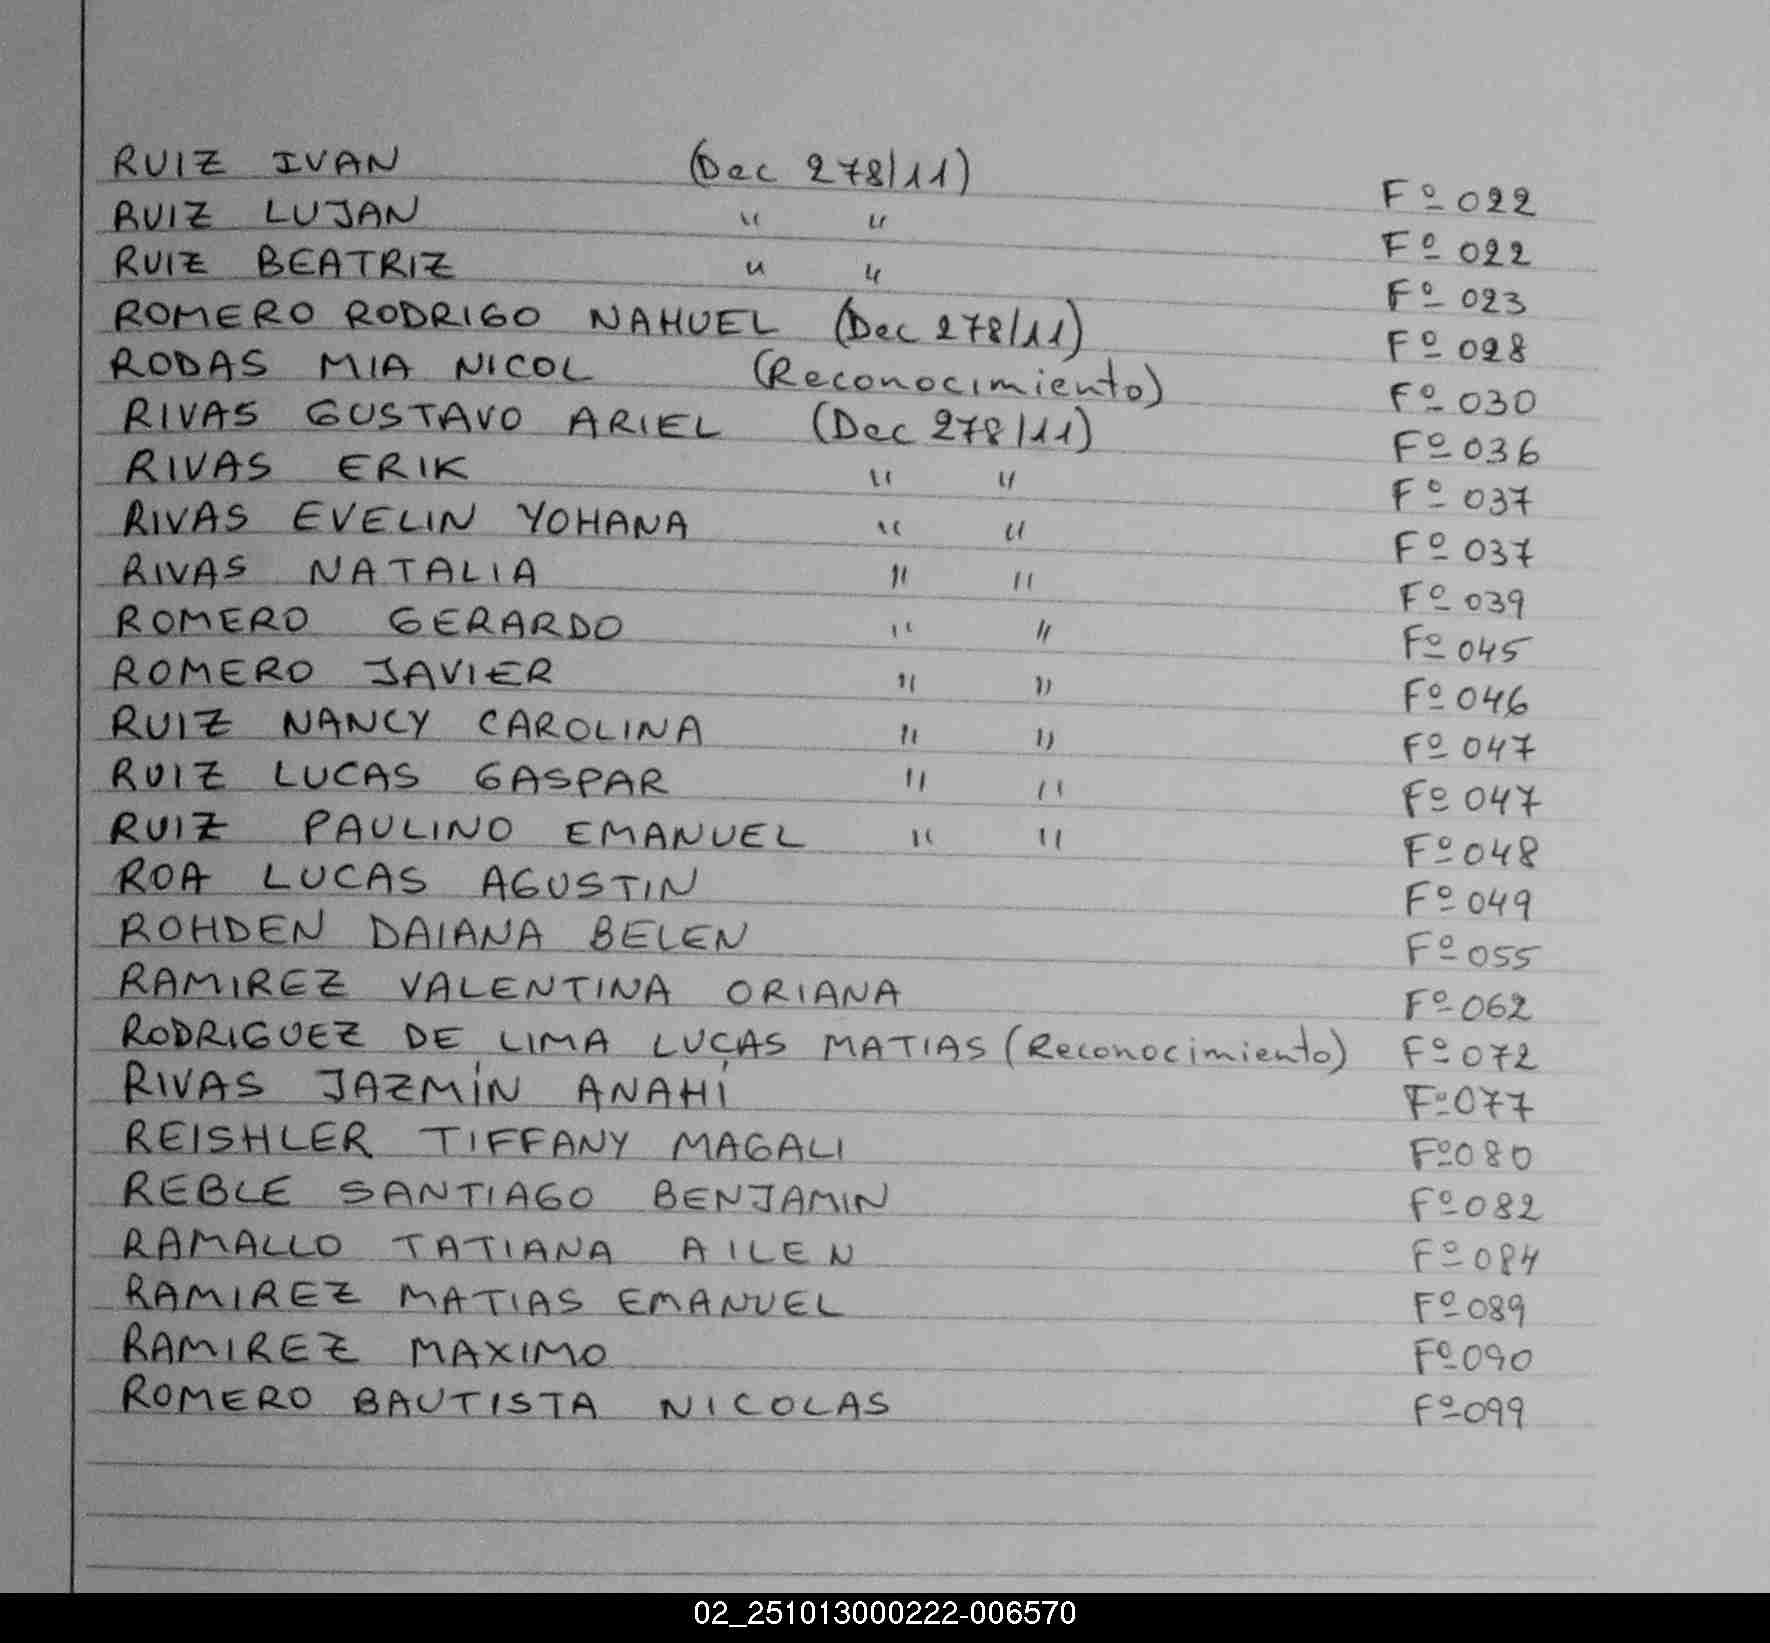 RUIZ IVAN (Dec 278/11) Fº 022
RUIZ LUJAN " " Fº 022
RUIZ BEATRIZ " " Fº 023
ROMERO RODRIGO NAHUEL (Dec 278/11) Fº 028
RODAS MIA NICOL (Reconocimiento) Fº 030
RIVAS GUSTAVO ARIEL (Dec 278/11) Fº 036
RIVAS ERIK " " Fº 037
RIVAS EVELIN YOHANA " " Fº 037
RIVAS NATALIA " " Fº 039
ROMERO GERARDO " " Fº 045
ROMERO JAVIER " " Fº 046
RUIZ NANCY CAROLINA " " Fº 047
RUIZ LUCAS GASPAR " " Fº 047
RUIZ PAULINO EMANUEL " " Fº 048
ROA LUCAS AGUSTIN Fº 049
ROHDEN DAIANA BELEN Fº 055
RAMIREZ VALENTINA ORIANA Fº 062
RODRIGUEZ DE LIMA LUCAS MATIAS (Reconocimiento) Fº 072
RIVAS JAZMÍN ANAHÍ Fº 077
REISHLER TIFFANY MAGALI Fº 080
REBLE SANTIAGO BENJAMIN Fº 082
RAMALLO TATIANA AILEN Fº 084
RAMIREZ MATIAS EMANUEL Fº 089
RAMIREZ MAXIMO Fº 090
ROMERO BAUTISTA NICOLAS Fº 099
02_251013000222-006570